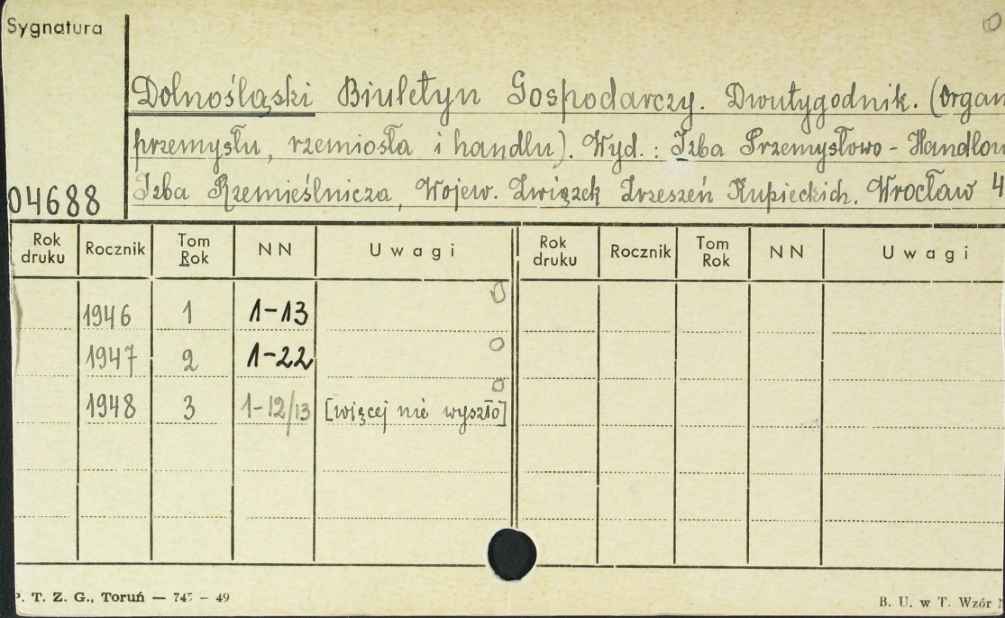 Sygnatura
Dolnośląski Biuletyn Gospodarczy. Dwutygodnik. (Organ
przemysłu, rzemiosła i handlu). Wyd.: Izba Przemysłowo-Handlow
04688 Izba Rzemieślnicza, Wojew. Związek Zrzeszeń Kupieckich. Wrocław 4
Rok druku Rocznik Tom Rok NN Uwagi Rok druku Rocznik Tom Rok NN Uwagi
1946 1 1-13
1947 2 1-22
1948 3 1-12/13 [więcej nie wyszło]
P. T. Z. G., Toruń — 745 - 49 B. U. w T. Wzór